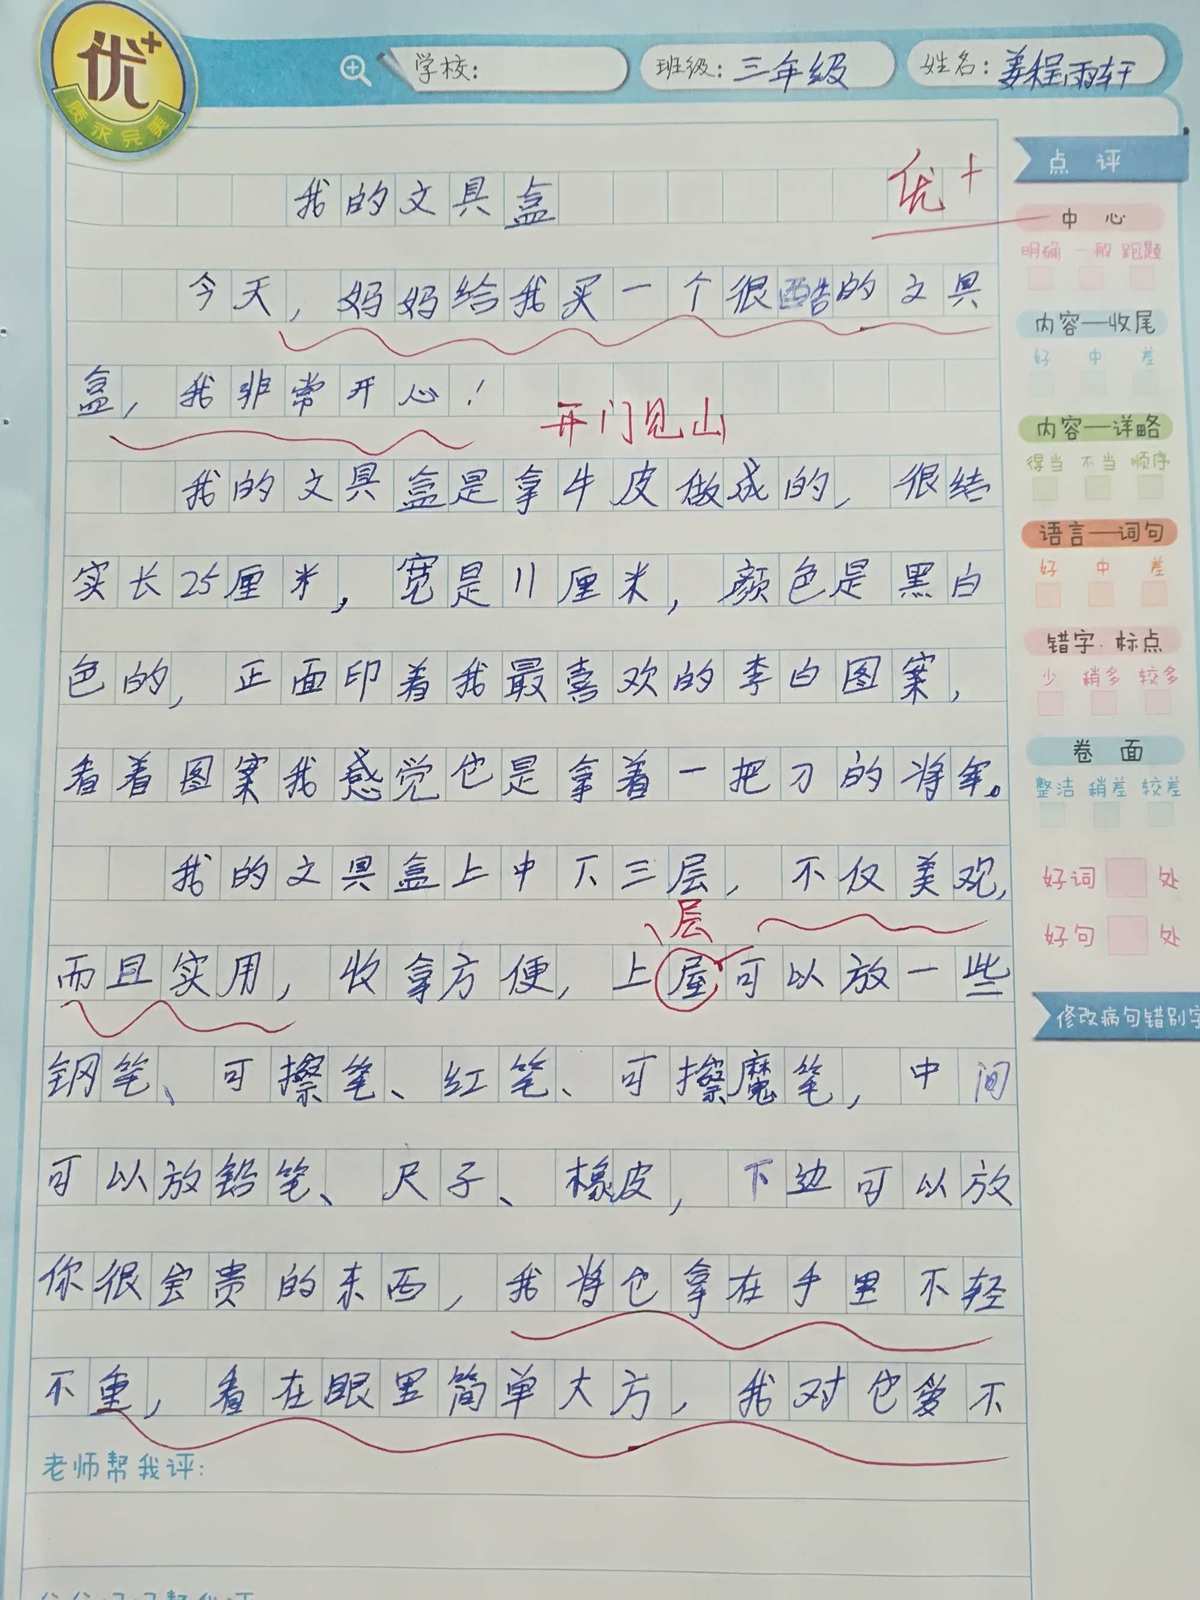 优+
质求完美
学校：
班级：三年级
姓名：姜程雨轩
点评
中心
明确 一般 跑题
内容—收尾
好 中 差
内容—详略
得当 不当 顺序
语言—词句
好 中 差
错字·标点
少 稍多 较多
卷面
整洁 稍差 较差
好词 处
好句 处
修改病句错别字
我的文具盒
优+
今天，妈妈给我买一个很酷的文具
盒，我非常开心！
开门见山
我的文具盒是拿牛皮做成的，很结
实长25厘米，宽是11厘米，颜色是黑白
色的，正面印着我最喜欢的李白图案，
看着图案我感觉它是拿着一把刀的将军。
我的文具盒上中下三层，不仅美观，
层
而且实用，收拿方便，上屋可以放一些
钢笔、可擦笔、红笔、可擦魔笔，中间
可以放铅笔、尺子、橡皮，下边可以放
你很宝贵的东西，我将它拿在手里不轻
不重，看在眼里简单大方，我对它爱不
老师帮我评：